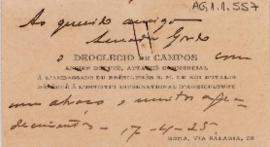 AG.1.1.557
Ao querido amigo
Senador Gordo
o DEOCLECIO DE CAMPOS com
ANCIEN DÉPUTÉ, ATTACHÉ COMMERCIAL
À L'AMBASSADE DU BRÉSIL PRÈS S. M. LE ROI D'ITALIE
DÉLÉGUÉ À L'INSTITUT INTERNATIONAL D'AGRICULTURE
um abraço e muitos agra-
decimentos - 17-4-25
ROMA, VIA